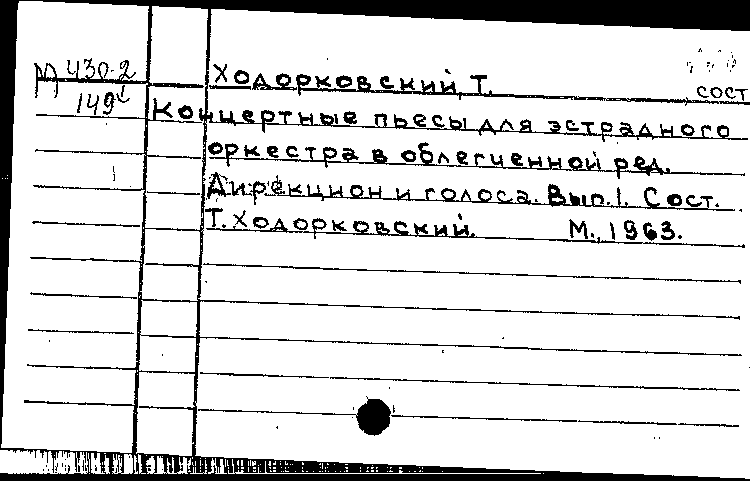 М 430-2 Ходорковский, Т.
149 сост
Концертные пьесы для эстрадного
оркестра в облегченной ред.
Дирекцион и голоса. Вып. 1. Сост.
Т. Ходорковский. М., 1963.